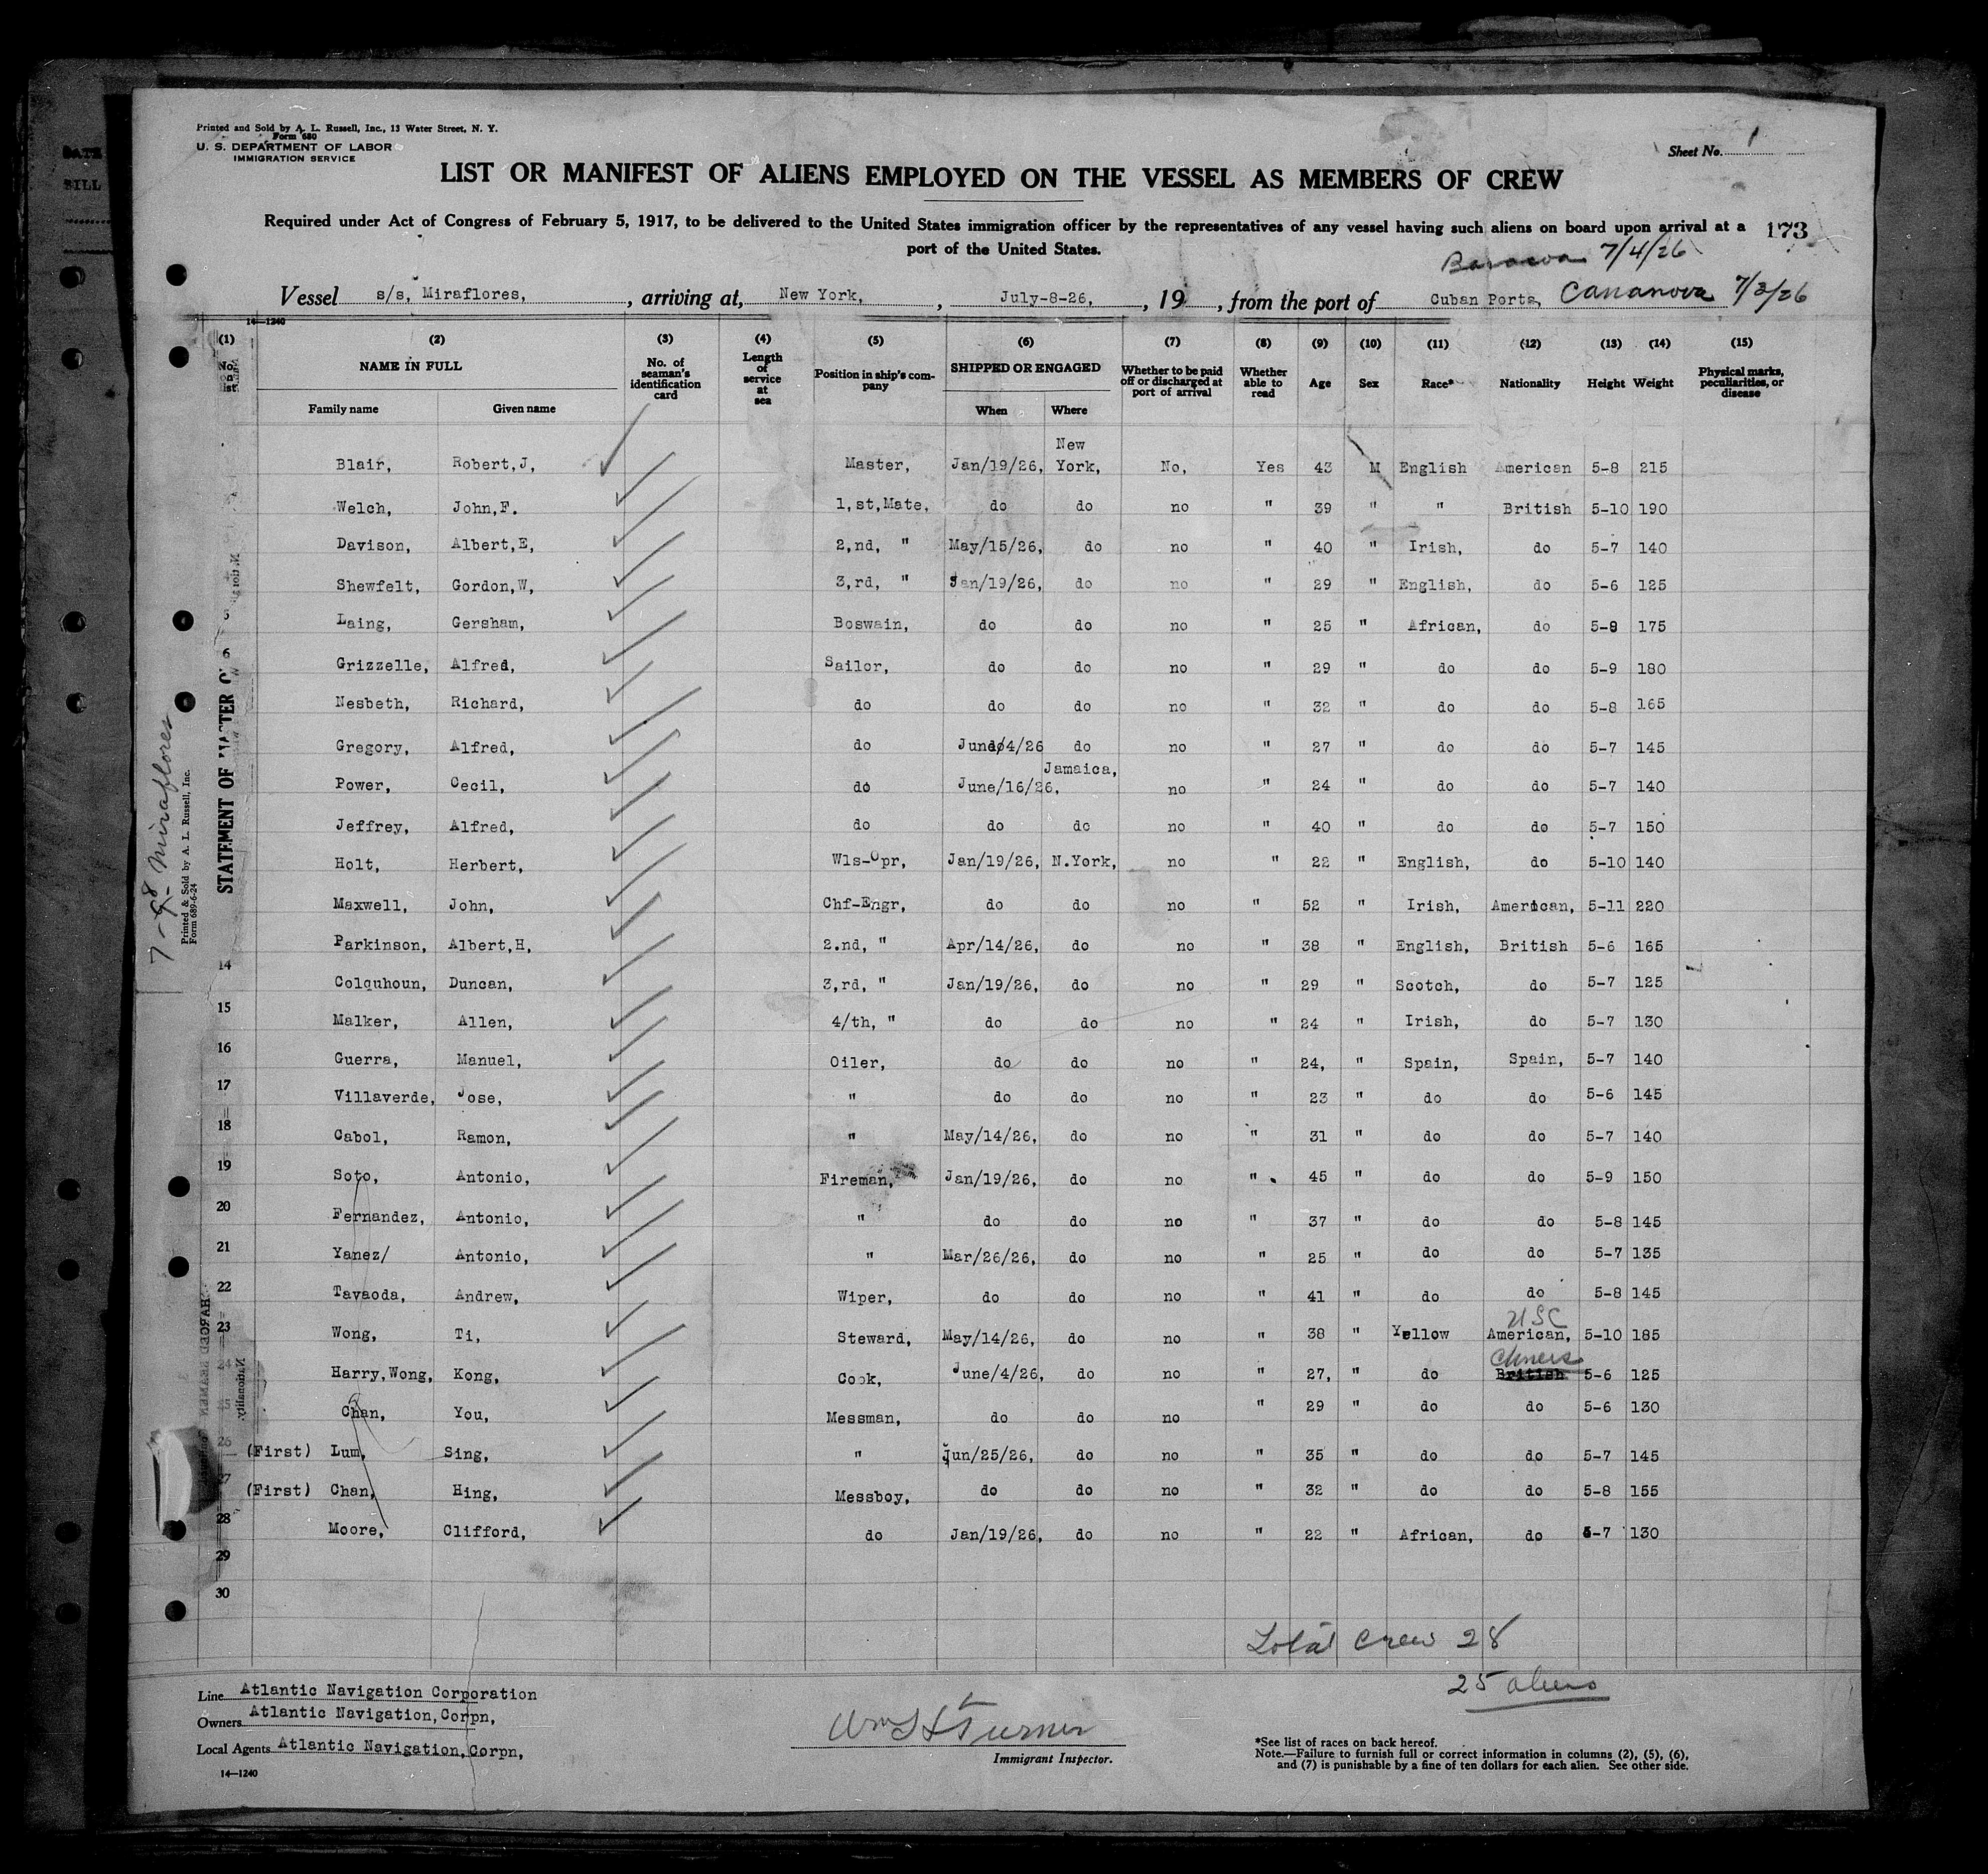 Printed and Sold by A. L. Russell, Inc., 13 Water Street, N. Y.
Form 680
U. S. DEPARTMENT OF LABOR
IMMIGRATION SERVICE
Sheet No. 1
LIST OR MANIFEST OF ALIENS EMPLOYED ON THE VESSEL AS MEMBERS OF CREW
Required under Act of Congress of February 5, 1917, to be delivered to the United States immigration officer by the representatives of any vessel having such aliens on board upon arrival at a
port of the United States.
173
7/4/26
Vessel s/s, Miraflores, , arriving at, New York, , July-8-26, , 19 , from the port of Cuban Ports, Cananova 7/3/26
14—1240
(1) (2) (3) (4) (5) (6) (7) (8) (9) (10) (11) (12) (13) (14) (15)
No. on list NAME IN FULL Family name Given name No. of seaman's identification card Length of service at sea Position in ship's company SHIPPED OR ENGAGED When Where Whether to be paid off or discharged at port of arrival Whether able to read Age Sex Race* Nationality Height Weight Physical marks, peculiarities, or disease
Blair, Robert,J, Master, Jan/19/26, New York, No, Yes 43 M English American 5-8 215
Welch, John,F. 1,st,Mate, do do no " 39 " " British 5-10 190
Davison, Albert,E, 2,nd, " May/15/26, do no " 40 " Irish, do 5-7 140
Shewfelt, Gordon,W, 3,rd, " Jan/19/26, do no " 29 " English, do 5-6 125
Laing, Gersham, Boswain, do do no " 25 " African, do 5-8 175
6 Grizzelle, Alfred, Sailor, do do no " 29 " do do 5-9 180
Nesbeth, Richard, do do do no " 32 " do do 5-8 165
Gregory, Alfred, do June/4/26 do no " 27 " do do 5-7 145
Power, Cecil, do June/16/26, Jamaica, no " 24 " do do 5-7 140
Jeffrey, Alfred, do do do no " 40 " do do 5-7 150
Holt, Herbert, Wls-Opr, Jan/19/26, N.York, no " 22 " English, do 5-10 140
Maxwell, John, Chf-Engr, do do no " 52 " Irish, American, 5-11 220
Parkinson, Albert,H, 2.nd, " Apr/14/26, do no " 38 " English, British 5-6 165
14 Colquhoun, Duncan, 3,rd, " Jan/19/26, do no " 29 " Scotch, do 5-7 125
15 Malker, Allen, 4/th, " do do no " 24 " Irish, do 5-7 130
16 Guerra, Manuel, Oiler, do do no " 24, " Spain, Spain, 5-7 140
17 Villaverde, Jose, " do do no " 23 " do do 5-6 145
18 Cabol, Ramon, " May/14/26, do no " 31 " do do 5-7 140
19 Soto, Antonio, Fireman, Jan/19/26, do no " 45 " do do 5-9 150
20 Fernandez, Antonio, " do do no " 37 " do do 5-8 145
21 Yanez/ Antonio, " Mar/26/26, do no " 25 " do do 5-7 135
22 Tavaoda, Andrew, Wiper, do do no " 41 " do do 5-8 145
USC
23 Wong, Ti, Steward, May/14/26, do no " 38 " Yellow American, 5-10 185
Chinese
24 Harry,Wong, Kong, Cook, June/4/26, do no " 27, " do British 5-6 125
25 Chan, You, Messman, do do no " 29 " do do 5-6 130
26 (First) Lum, Sing, " Jun/25/26, do no " 35 " do do 5-7 145
27 (First) Chan, Hing, Messboy, do do no " 32 " do do 5-8 155
28 Moore, Clifford, do Jan/19/26, do no " 22 " African, do 5-7 130
29
30
Total Crew 28
25 aliens
Line Atlantic Navigation Corporation
Owners Atlantic Navigation,Corpn,
Local Agents Atlantic Navigation,Corpn,
14—1240
Turner
Immigrant Inspector.
*See list of races on back hereof.
Note.—Failure to furnish full or correct information in columns (2), (5), (6),
and (7) is punishable by a fine of ten dollars for each alien. See other side.
7-8- Miraflores
Printed & Sold by A. L. Russell, Inc.
Form 689-6-24
STATEMENT OF MASTER
Nationality
BILL